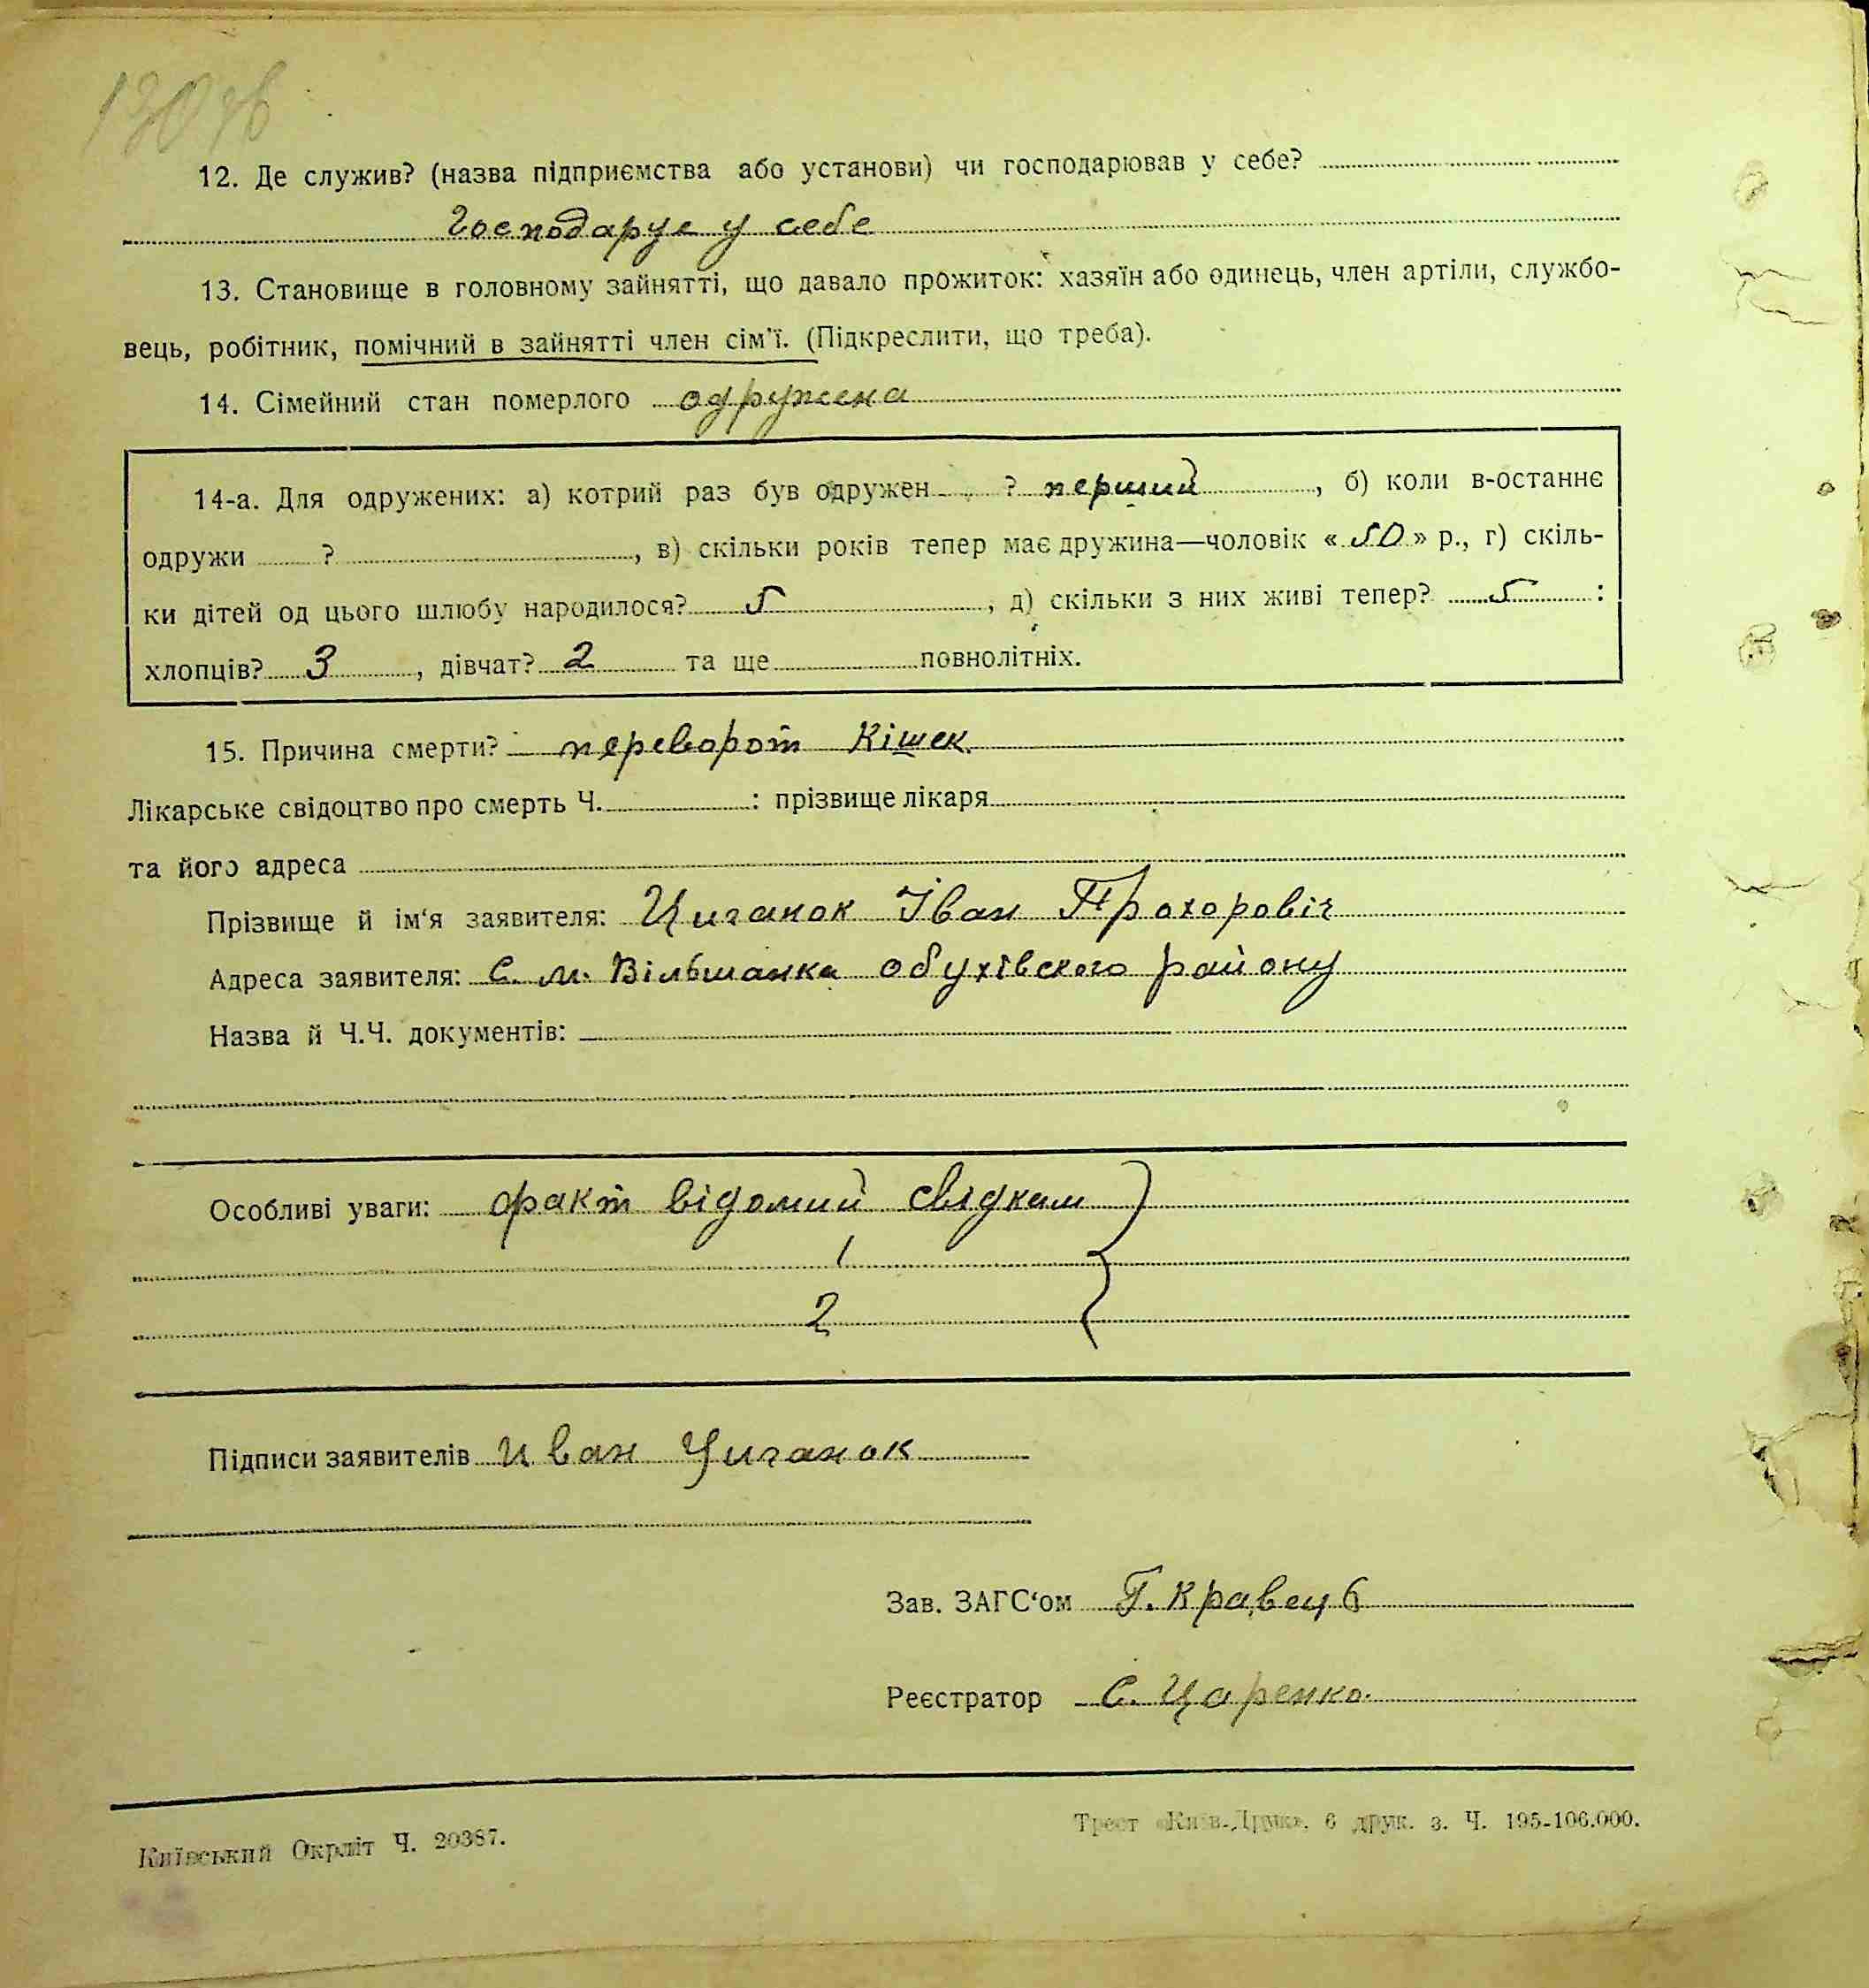 130 зв
12. Де служив? (назва підприємства або установи) чи господарював у себе?
Господарує у себе
13. Становище в головному зайнятті, що давало прожиток: хазяїн або одинець, член артіли, службо-
вець, робітник, помічний в зайнятті член сім'ї. (Підкреслити, що треба).
14. Сімейний стан померлого одружена
14-а. Для одружених: а) котрий раз був одружен ? перший, б) коли в-останнє
одружи ? , в) скільки років тепер має дружина—чоловік «50» р., г) скіль-
ки дітей од цього шлюбу народилося? 5, д) скільки з них живі тепер? 5 :
хлопців? 3, дівчат? 2 та ще повнолітніх.
15. Причина смерти? переворот Кішек.
Лікарське свідоцтво про смерть Ч. : прізвище лікаря
та його адреса
Прізвище й ім'я заявителя: Циганок Іван Прохоровіч
Адреса заявителя: С. м. Вільшанка обухівского району
Назва й Ч.Ч. документів:
Особливі уваги: факт відомий свідкам
1
2
Підписи заявителів Иван Циганок
Зав. ЗАГС'ом Г. Кравець
Реєстратор С. Царенко.
Київський Окрліт Ч. 20387.
Трест «Київ-Друк». 6 друк. з. Ч. 195-106.000.